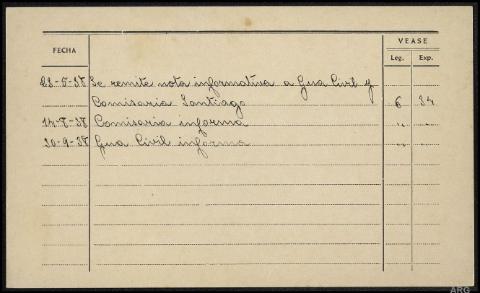 VEASE
FECHA
Leg. Exp.
Se remite nota informativa a Gua Civil y
Comisaria Santiago 6 34
Comisaria informa " "
20-9-38 Gua Civil informa " "
ARG